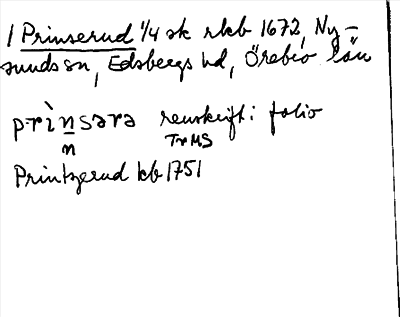 1 Prinserud 1/4 sk rkb 1672, Ny-
sunds sn, Edsbergs hd, Örebro län
prìnsərə renskrift: folio
n TrMS
Printzerud kb 1751